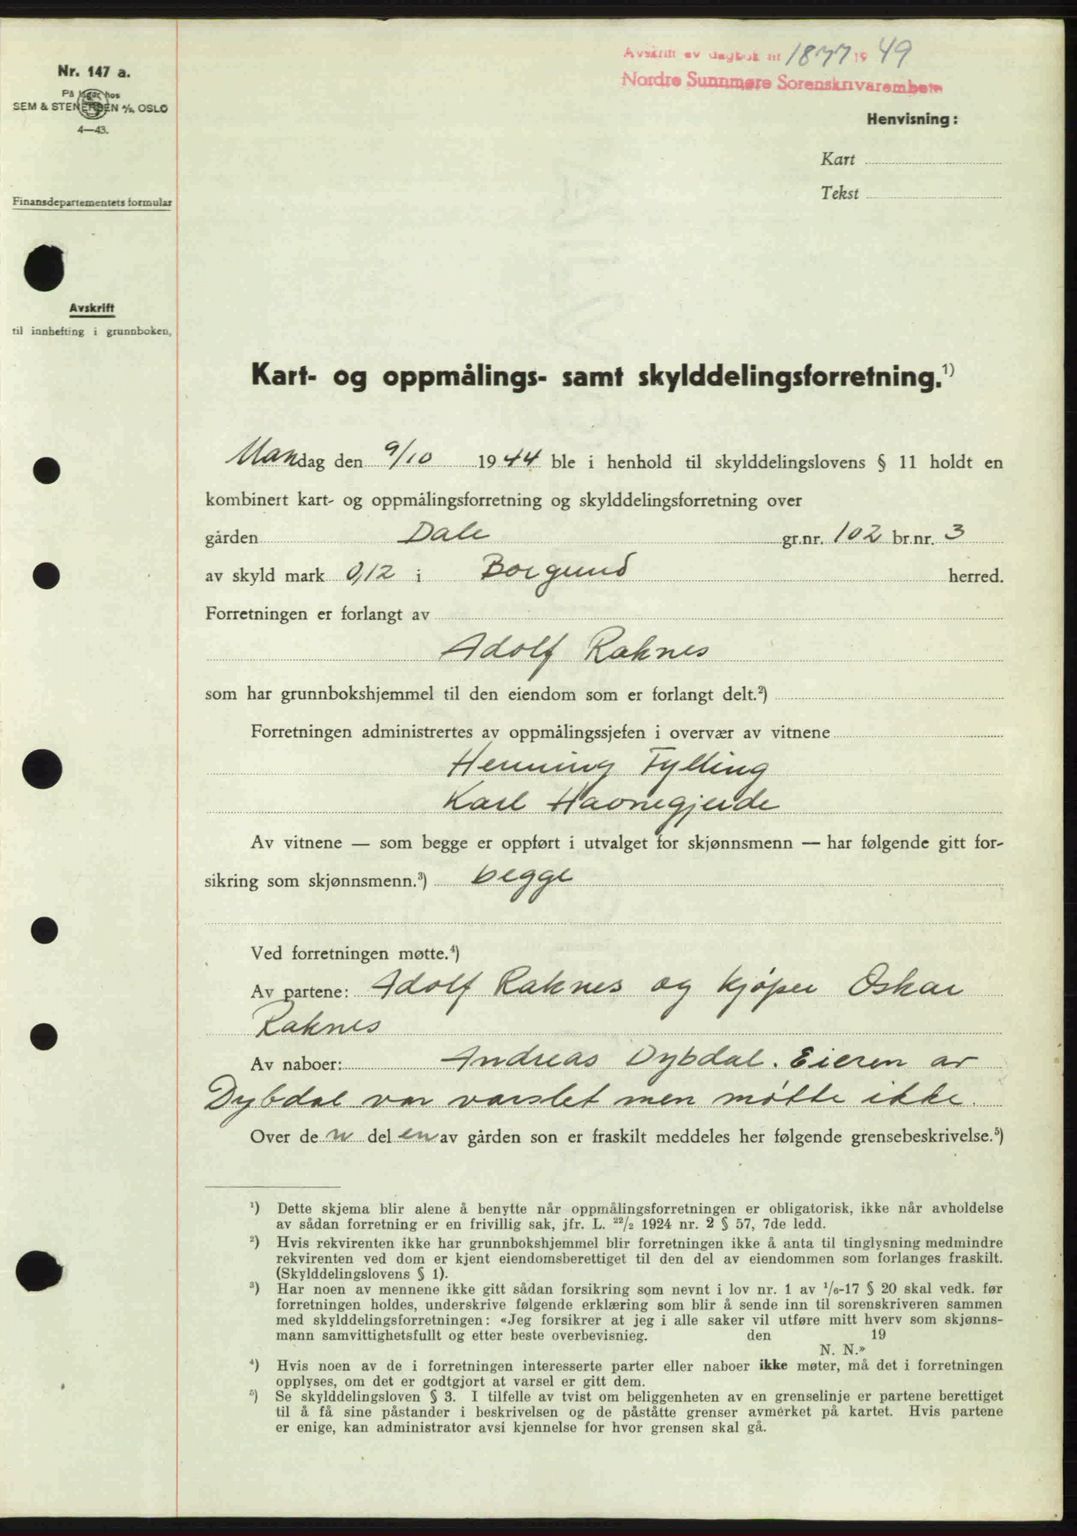 Nr. 147 a.
På lager hos
SEM & STENERSEN A/S, OSLO
4—43.
Finansdepartementets formular
Avskrift
til innhefting i grunnboken,
Avskrift av dagbok nr 1877 19 49
Nordre Sunnmøre Sorenskrivarembete
Henvisning:
Kart
Tekst
Kart- og oppmålings- samt skylddelingsforretning.¹)
Mandag den 9/10 1944 ble i henhold til skylddelingslovens § 11 holdt en
kombinert kart- og oppmålingsforretning og skylddelingsforretning over
gården Dale gr.nr. 102 br.nr. 3
av skyld mark 0,12 i Borgund herred.
Forretningen er forlangt av
Adolf Raknes
som har grunnbokshjemmel til den eiendom som er forlangt delt.²)
Forretningen administrertes av oppmålingssjefen i overvær av vitnene
Henning Fylling
Karl Havnegjerde
Av vitnene — som begge er oppført i utvalget for skjønnsmenn — har følgende gitt for-
sikring som skjønnsmenn.³) begge
Ved forretningen møtte.⁴)
Av partene: Adolf Raknes og kjøper Oskar
Raknes
Av naboer: Andreas Dybdal. Eieren av
Dybdal var varslet men møtte ikke.
Over den delen av gården son er fraskilt meddeles her følgende grensebeskrivelse.⁵)
¹) Dette skjema blir alene å benytte når oppmålingsforretningen er obligatorisk, ikke når avholdelse
av sådan forretning er en frivillig sak, jfr. L. 22/2 1924 nr. 2 § 57, 7de ledd.
²) Hvis rekvirenten ikke har grunnbokshjemmel blir forretningen ikke å anta til tinglysning medmindre
rekvirenten ved dom er kjent eiendomsberettiget til den del av eiendommen som forlanges fraskilt.
(Skylddelingslovens § 1).
³) Har noen av mennene ikke gitt sådan forsikring som nevnt i lov nr. 1 av 1/6-17 § 20 skal vedk. før
forretningen holdes, underskrive følgende erklæring som blir å sende inn til sorenskriveren sammen
med skylddelingsforretningen: «Jeg forsikrer at jeg i alle saker vil utføre mitt hverv som skjønns-
mann samvittighetsfullt og etter beste overbevisnieg. den 19
N. N.»
⁴) Hvis noen av de i forretningen interesserte parter eller naboer ikke møter, må det i forretningen
opplyses, om det er godtgjort at varsel er gitt dem.
⁵) Se skylddelingsloven § 3. I tilfelle av tvist om beliggenheten av en grenselinje er partene berettiget
til å få sine påstander i beskrivelsen og de påståtte grenser avmerket på kartet. Hvis partene
er enige, kan administrator avsi kjennelse for hvor grensen skal gå.